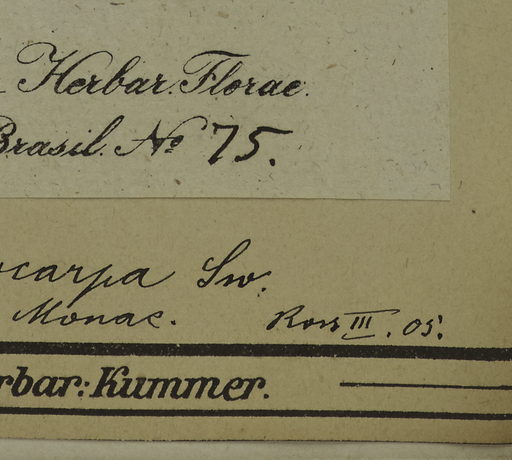 Herbar. Florae
Brasil. No 75.
ocarpa Sw.
Monac. Ross III. 05.
rbar: Kummer.